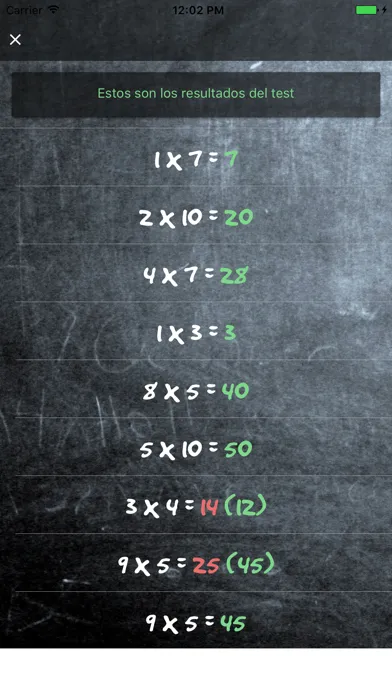 Carrier 12:02 PM
×
Estos son los resultados del test
1 x 7 = 7
2 x 10 = 20
4 x 7 = 28
1 x 3 = 3
8 x 5 = 40
5 x 10 = 50
3 x 4 = 14 (12)
9 x 5 = 25 (45)
9 x 5 = 45